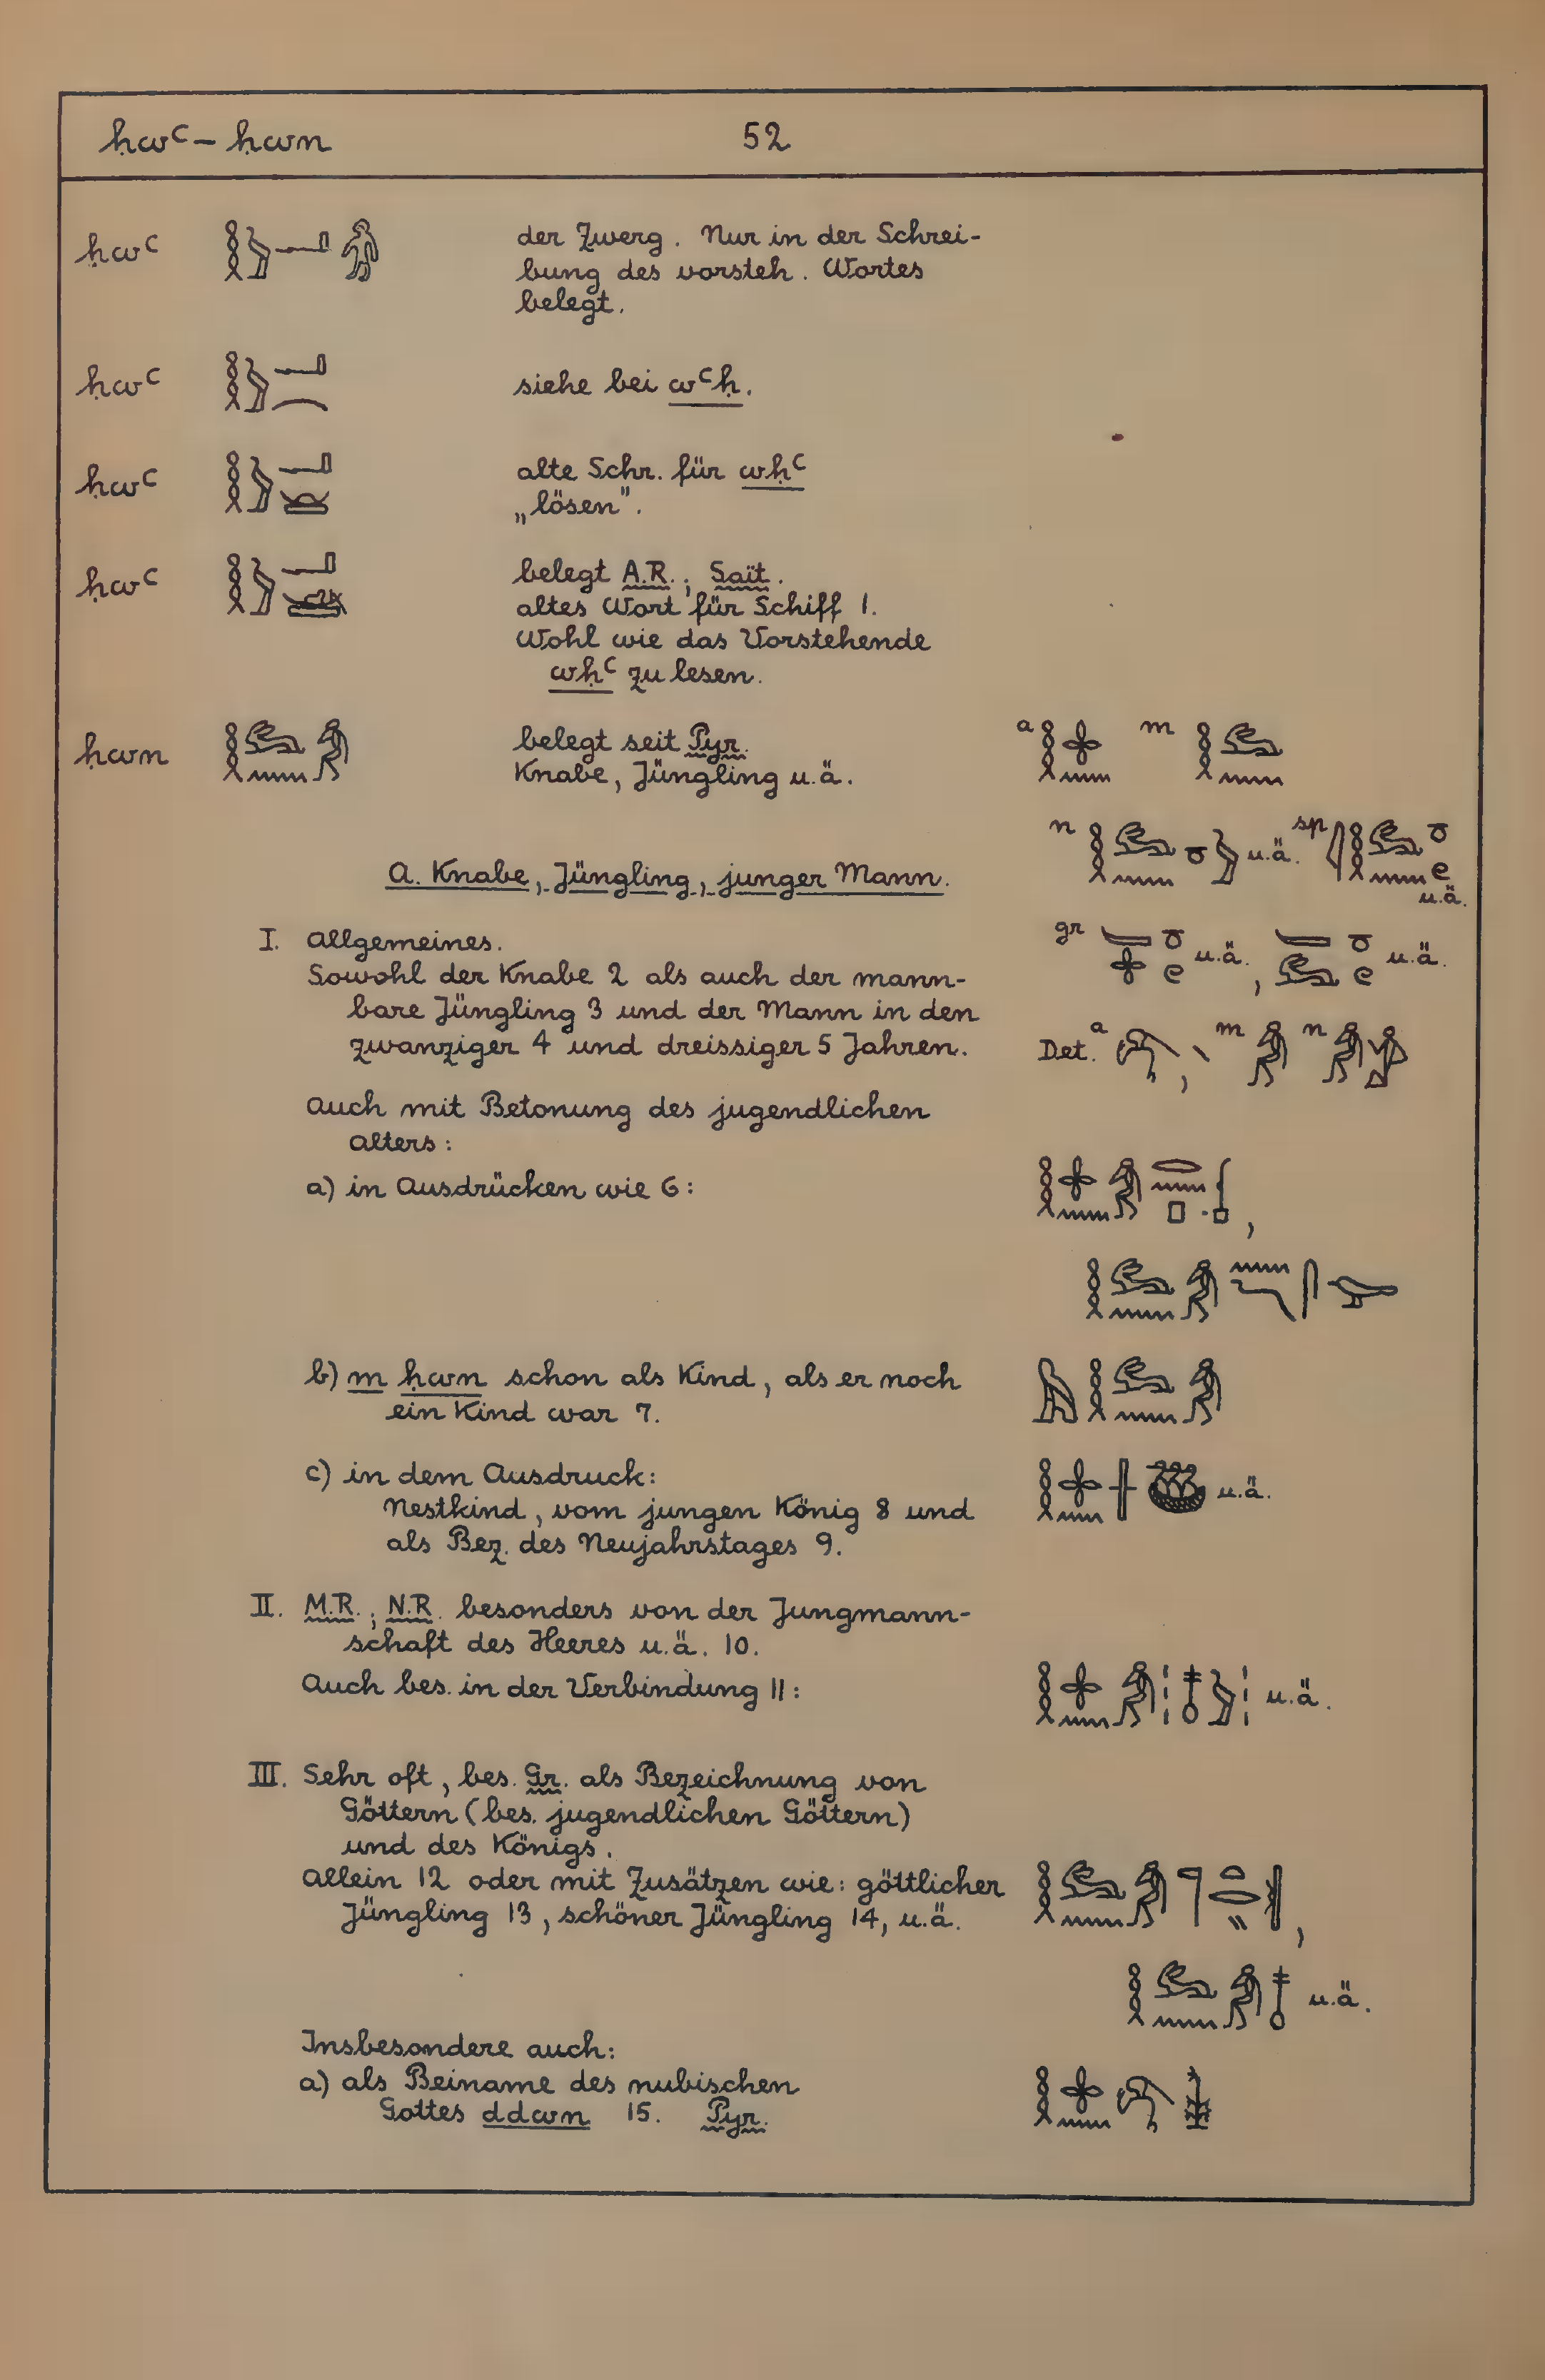 ḥwꜥ – ḥwn 52
ḥwꜥ der Zwerg. Nur in der Schrei-
bung des vorsteh. Wortes
belegt.
ḥwꜥ siehe bei wꜥḥ.
ḥwꜥ alte Schr. für wḥꜥ
„lösen".
ḥwꜥ belegt A.R.; Saït.
altes Wort für Schiff 1.
Wohl wie das Vorstehende
wḥꜥ zu lesen.
ḥwn belegt seit Pyr. a m
Knabe, Jüngling u.ä.
n u.ä. sp u.ä.
A. Knabe, Jüngling, junger Mann.
I. Allgemeines. gr u.ä., u.ä.
Sowohl der Knabe 2 als auch der mann-
bare Jüngling 3 und der Mann in den
zwanziger 4 und dreissiger 5 Jahren. Det. a , m n
Auch mit Betonung des jugendlichen
Alters:
a) in Ausdrücken wie 6: ,
b) m ḥwn schon als Kind, als er noch
ein Kind war 7.
c) in dem Ausdruck: u.ä.
Nestkind, vom jungen König 8 und
als Bez. des Neujahrstages 9.
II. M.R.; N.R. besonders von der Jungmann-
schaft des Heeres u.ä. 10.
Auch bes. in der Verbindung 11: u.ä.
III. Sehr oft, bes. Gr. als Bezeichnung von
Göttern (bes. jugendlichen Göttern)
und des Königs.
Allein 12 oder mit Zusätzen wie: göttlicher
Jüngling 13, schöner Jüngling 14, u.ä. ,
u.ä.
Insbesondere auch:
a) als Beiname des nubischen
Gottes ddwn 15. Pyr.